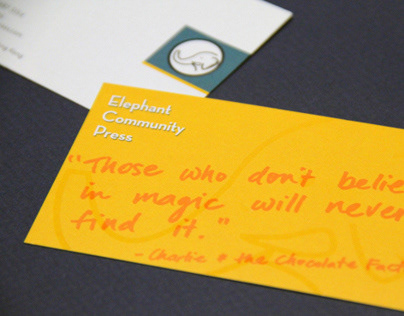 Elephant
Community
Press
"Those who don't believe
in magic will never
find it."
- Charlie & the Chocolate Fact